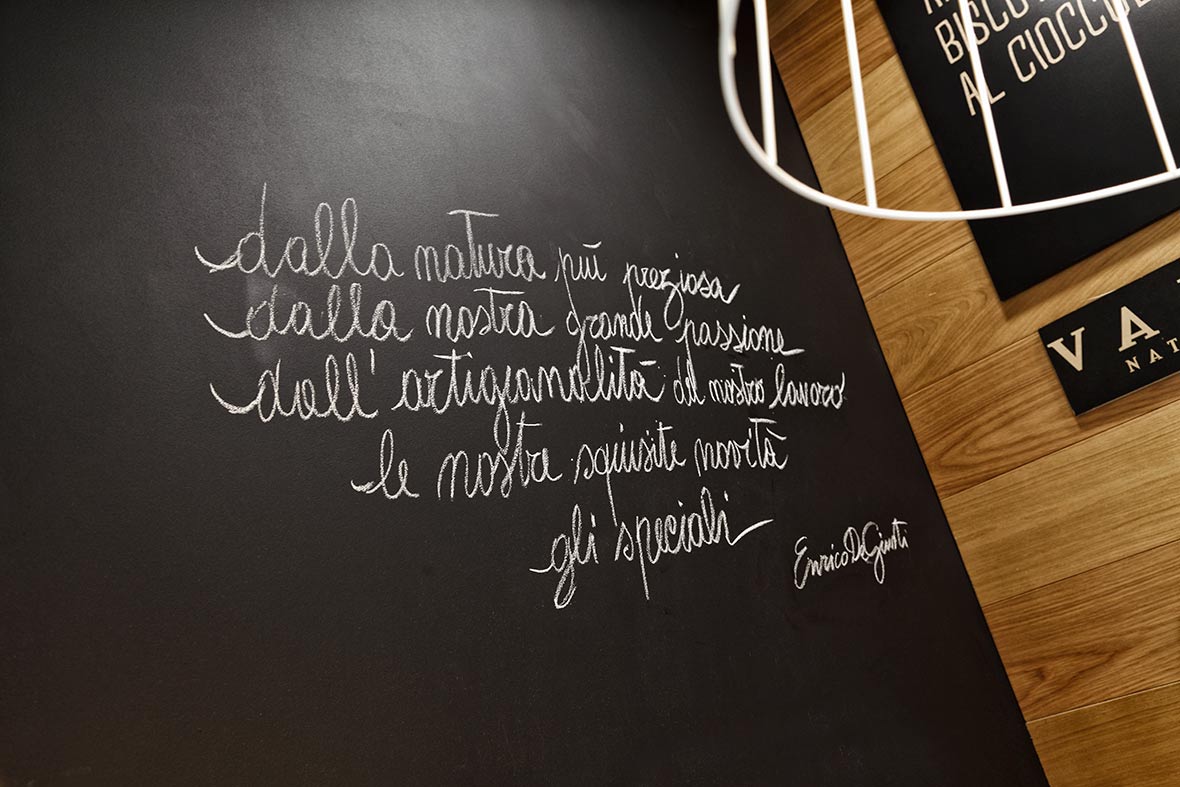 dalla natura più preziosa
dalla nostra grande passione
dall' artigianalità del nostro lavoro
le nostre squisite novità
gli speciali
Enrico De Giusti
BISCO
AL CIOCCOL
VA
NAT